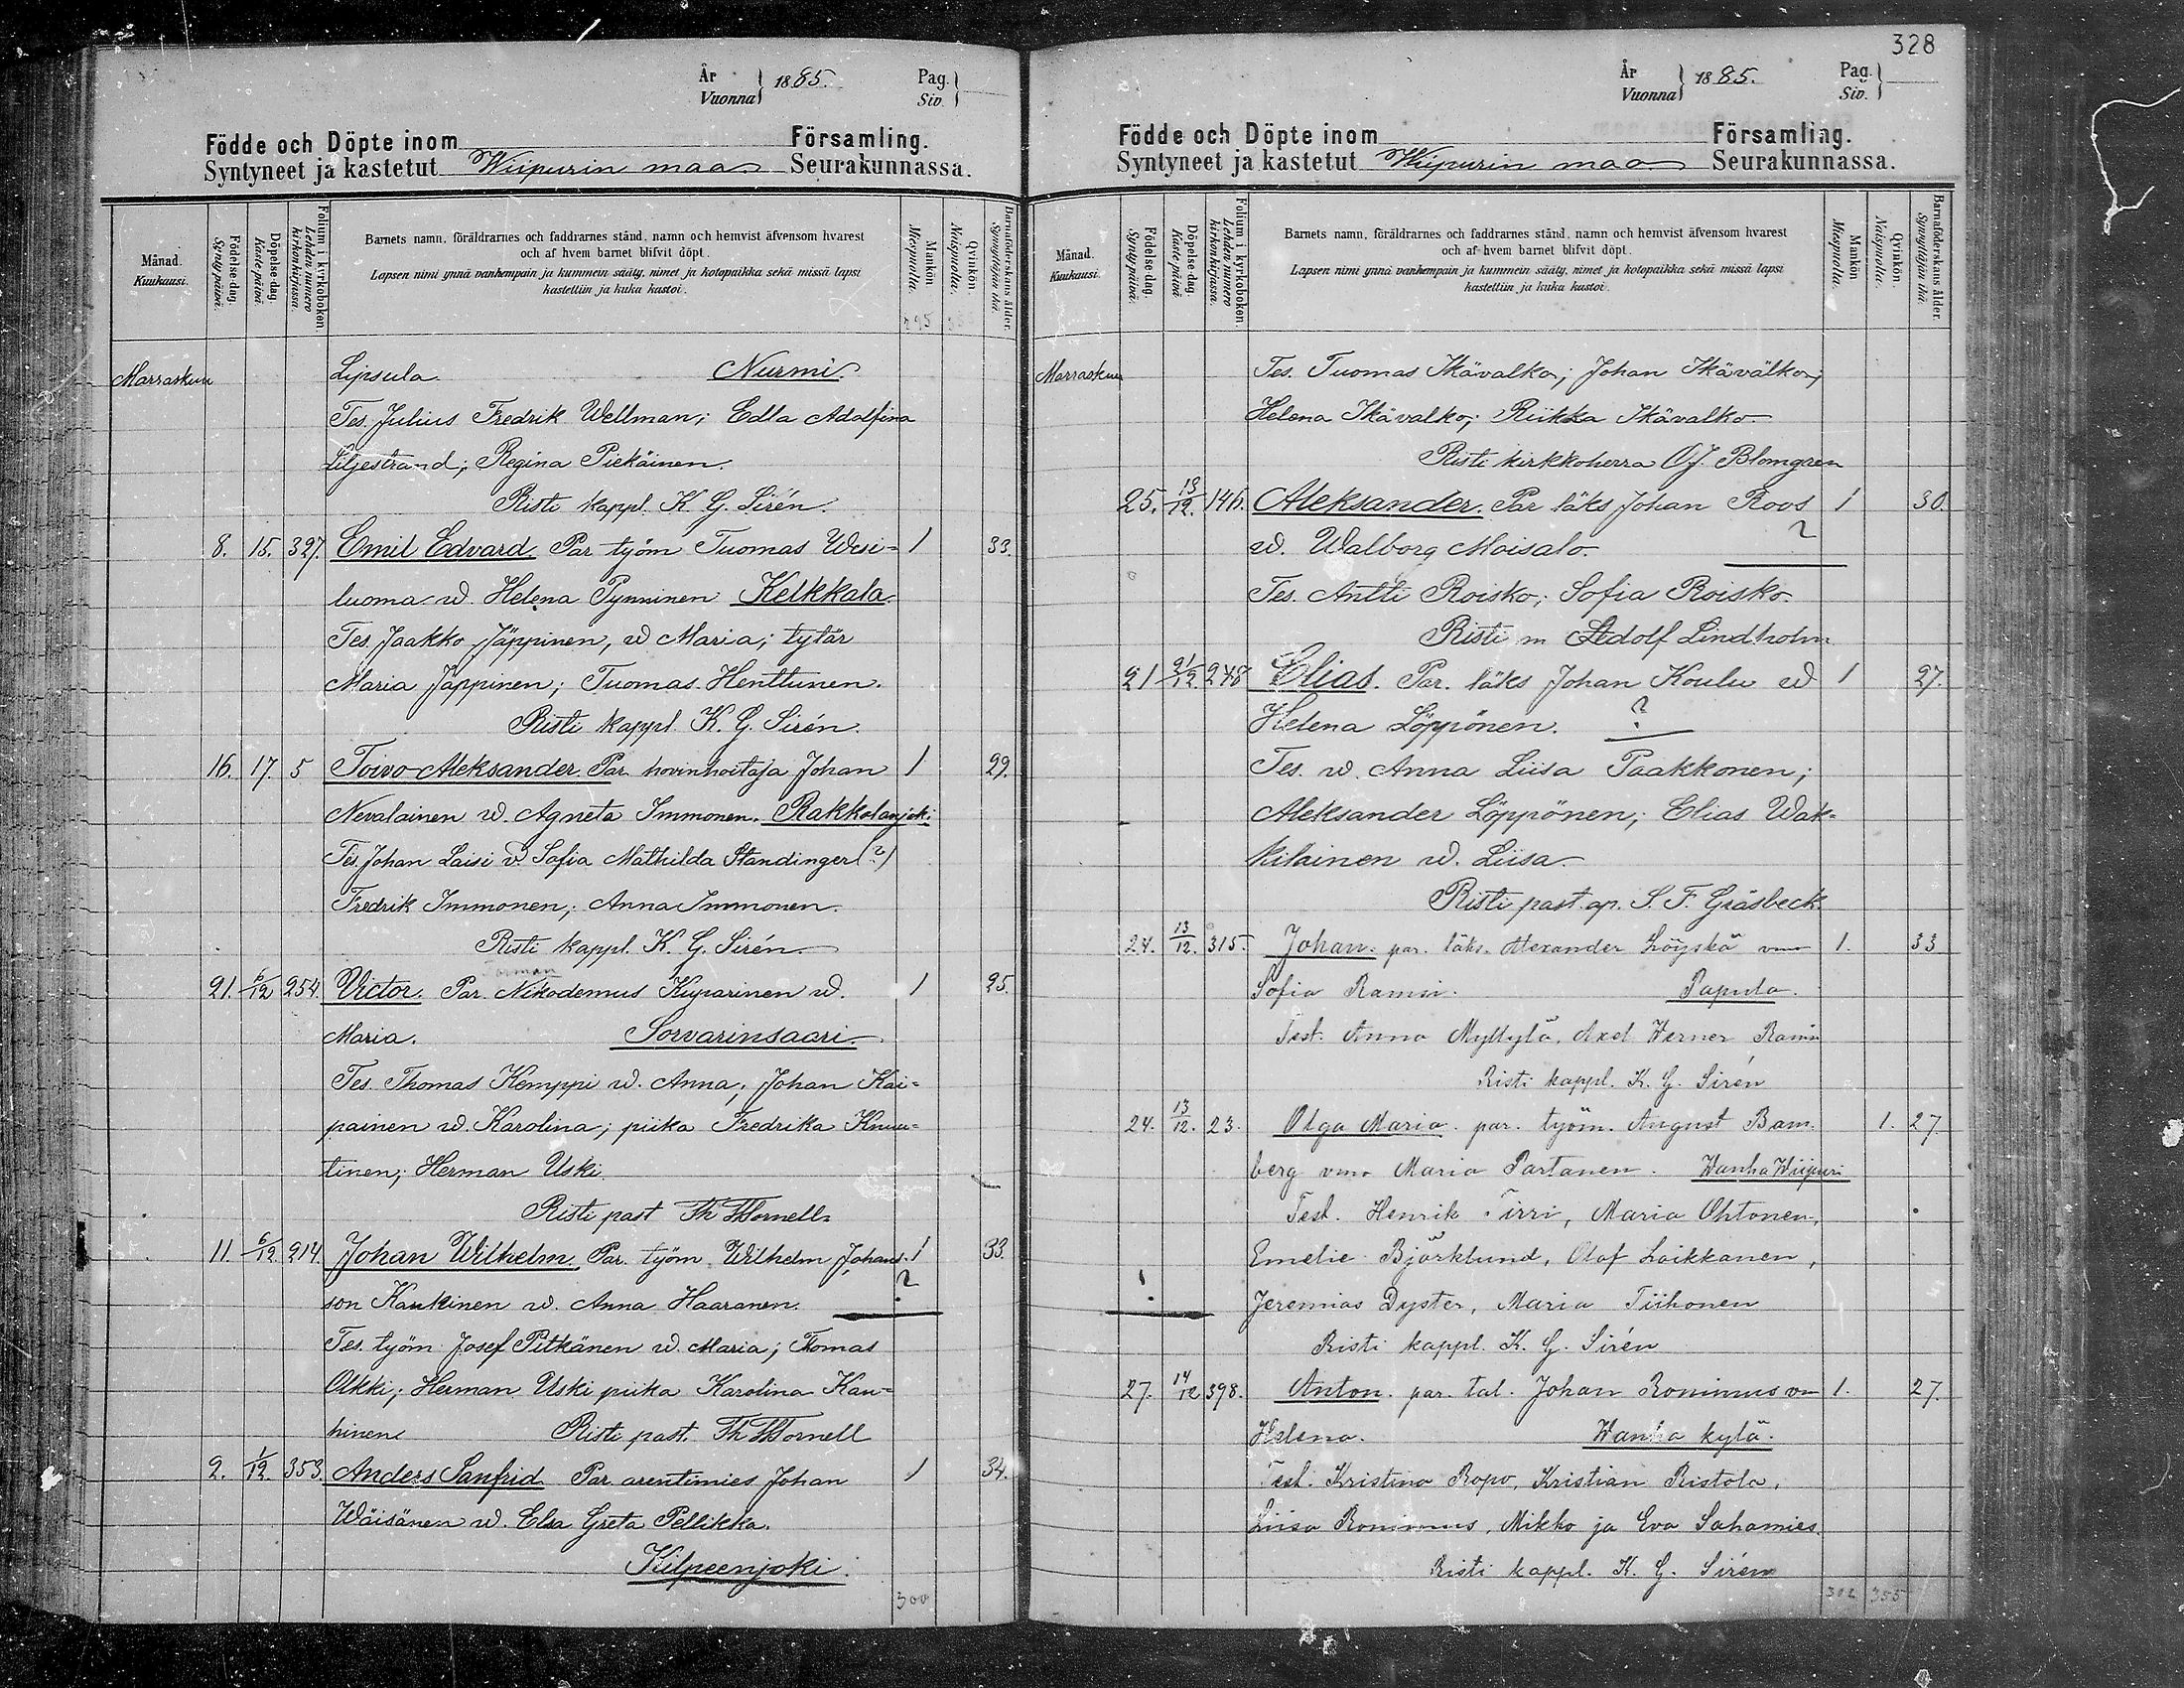 År
Vuonna } 1885.
Pag.
Siv. }
Födde och Döpte inom Församling.
Syntyneet ja kastetut Wiipurin maa Seurakunnassa.
Månad.
Kuukausi.
Födelse-dag.
Syntypäivä.
Döpelse-dag.
Kastepäivä.
Folium i kyrkoboken.
Lehden numero
kirkonkirjassa.
Barnets namn, föräldrarnes och faddrarnes stånd, namn och hemvist äfvensom hvarest
och af hvem barnet blifvit döpt.
Lapsen nimi ynnä vanhempain ja kummein sääty, nimet ja kotopaikka sekä missä lapsi
kastettiin ja kuka kastoi.
Mankön.
Miespuolia.
Qvinkön.
Naispuolia.
Barnaföderskans ålder.
Synnyttäjän ikä.
295
Marraskuu Lipsula. Nurmi.
Tes. Julius Fredrik Wellman; Edla Adolfina
Liljestrand; Regina Piekäinen.
Risti kappl. K. G. Sirén.
8. 15. 327. Emil Edvard. Par työm Tuomas Wesi- 1 33.
luoma w. Helena Pynninen Kelkkala.
Tes. Jaakko Jäppinen, w Maria; tytär
Maria Jäppinen; Tuomas Henttunen.
Risti kappl. K. G. Sirén.
16. 17. 5 Toivo Aleksander. Par hovinhoitaja Johan 1 29.
Nevalainen w. Agneta Immonen. Rakkolanjoki
Tes. Johan Laisi v. Sofia Mathilda Standinger (?)
Fredrik Immonen; Anna Immonen.
Risti kappl. K. G. Sirén.
21. 6/12 254. Victor. Par. Nikodemus Kuparinen w. 1 25.
Maria. Sorvarinsaari.
Tes. Thomas Kemppi w. Anna; Johan Kai-
painen w. Karolina; piika Fredrika Knuu-
tinen; Herman Uski.
Risti past Th Thornell.
11. 6/12. 214. Johan Wilhelm. Par. työm. Wilhelm Johans- 1 33.
son Kaukinen w. Anna Haaranen. ?
Tes. työm Josef Pitkänen w. Maria; Thomas
Olkki; Herman Uski piika Karolina Kau-
hinen Risti past. Th Thornell
2. 1/12. 353. Anders Sanfrid Par arentimies Johan 1 34.
Wäisänen w. Elsa Greta Pellikka.
Kilpeenjoki.
300
328
År
Vuonna } 1885.
Pag.
Siv. }
Födde och Döpte inom Församling.
Syntyneet ja kastetut Wiipurin maa Seurakunnassa.
Månad.
Kuukausi.
Födelse-dag.
Syntypäivä.
Döpelse-dag.
Kastepäivä.
Folium i kyrkoboken.
Lehden numero
kirkonkirjassa.
Barnets namn, föräldrarnes och faddrarnes stånd, namn och hemvist äfvensom hvarest
och af hvem barnet blifvit döpt.
Lapsen nimi ynnä vanhempain ja kummein sääty, nimet ja kotopaikka sekä missä lapsi
kastettiin ja kuka kastoi.
Mankön
Miespuolia.
Qvinkön.
Naispuolia.
Barnaföderskans ålder.
Synnyttäjän ikä.
Marraskuu Tes. Tuomas Ikävalko; Johan Ikävälko;
Helena Ikävalko; Riikka Ikävalko.
Risti kirkkoherra O. J. Blomgren
25. 13/12. 146. Aleksander. Par läks Johan Roos 1 30.
w. Walborg Moisalo. ?
Tes. Antti Roisko; Sofia Roisko.
Risti m Adolf Lindholm
21 21/12. 248 Elias. Par. läks Johan Koulu w 1 27.
Helena Löppönen. ?
Tes. w. Anna Liisa Paakkonen;
Aleksander Löppönen; Elias Wak-
kilainen w. Liisa.
Risti past. ap. S. F. Gräsbeck.
24. 13/12. 315. Johan. par. läks. Alexander Löyskä vmo 1. 33
Sofia Ramsi. Papula.
Test. Anna Myllylä, Axel Werner Ramsi
Risti kappl. K. G. Sirén
24. 13/12. 23. Olga Maria. par. työm. August Bam- 1. 27.
berg vmo Maria Partanen. Wanha Wiipuri
Test. Henrik Tirri, Maria Ohtonen,
Emelie Björklund, Olof Laikkanen,
Jeremias Dyster, Maria Tiihonen
Risti kappl. K. G. Sirén
27. 14/12 398. Anton. par. tal. Johan Ronimus vm 1. 27.
Helena. Wanha kylä.
Test. Kristina Ropo, Kristian Ristola,
Liisa Ronimus, Mikko ja Eva Sahamies.
Risti kappl. K. G. Sirén
302 355